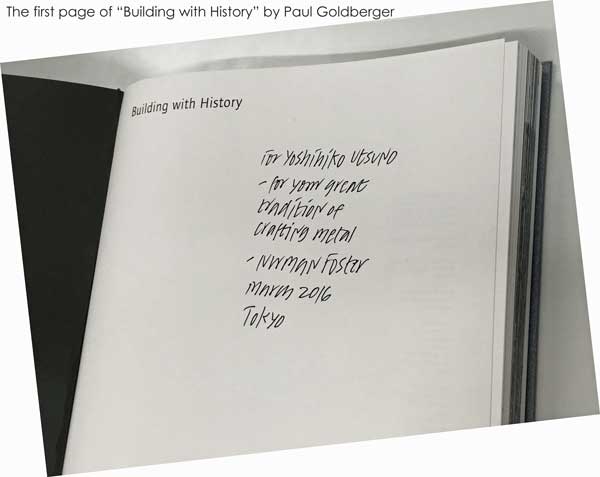 The first page of “Building with History” by Paul Goldberger
Building with History
For Yoshihiko UTSUNO
- for your great
tradition of
crafting metal
- NORMAN FOSTER
march 2016
Tokyo